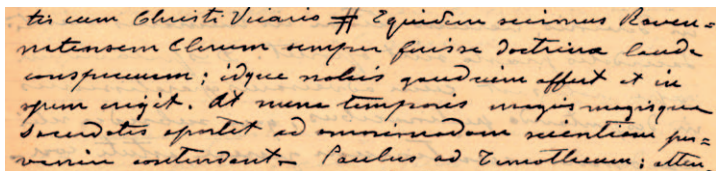 tis cum Christi Vicario # Equidem scimus Raven=
natensem Clerum semper fuisse doctrinae laude
conspicuum; idque nobis gaudium affert et in
spem erigit. At nunc temporis magis magisque
sacerdotes oportet ad omnimodam scientiam per=
venire contendant. Paulus ad Timotheum; atten